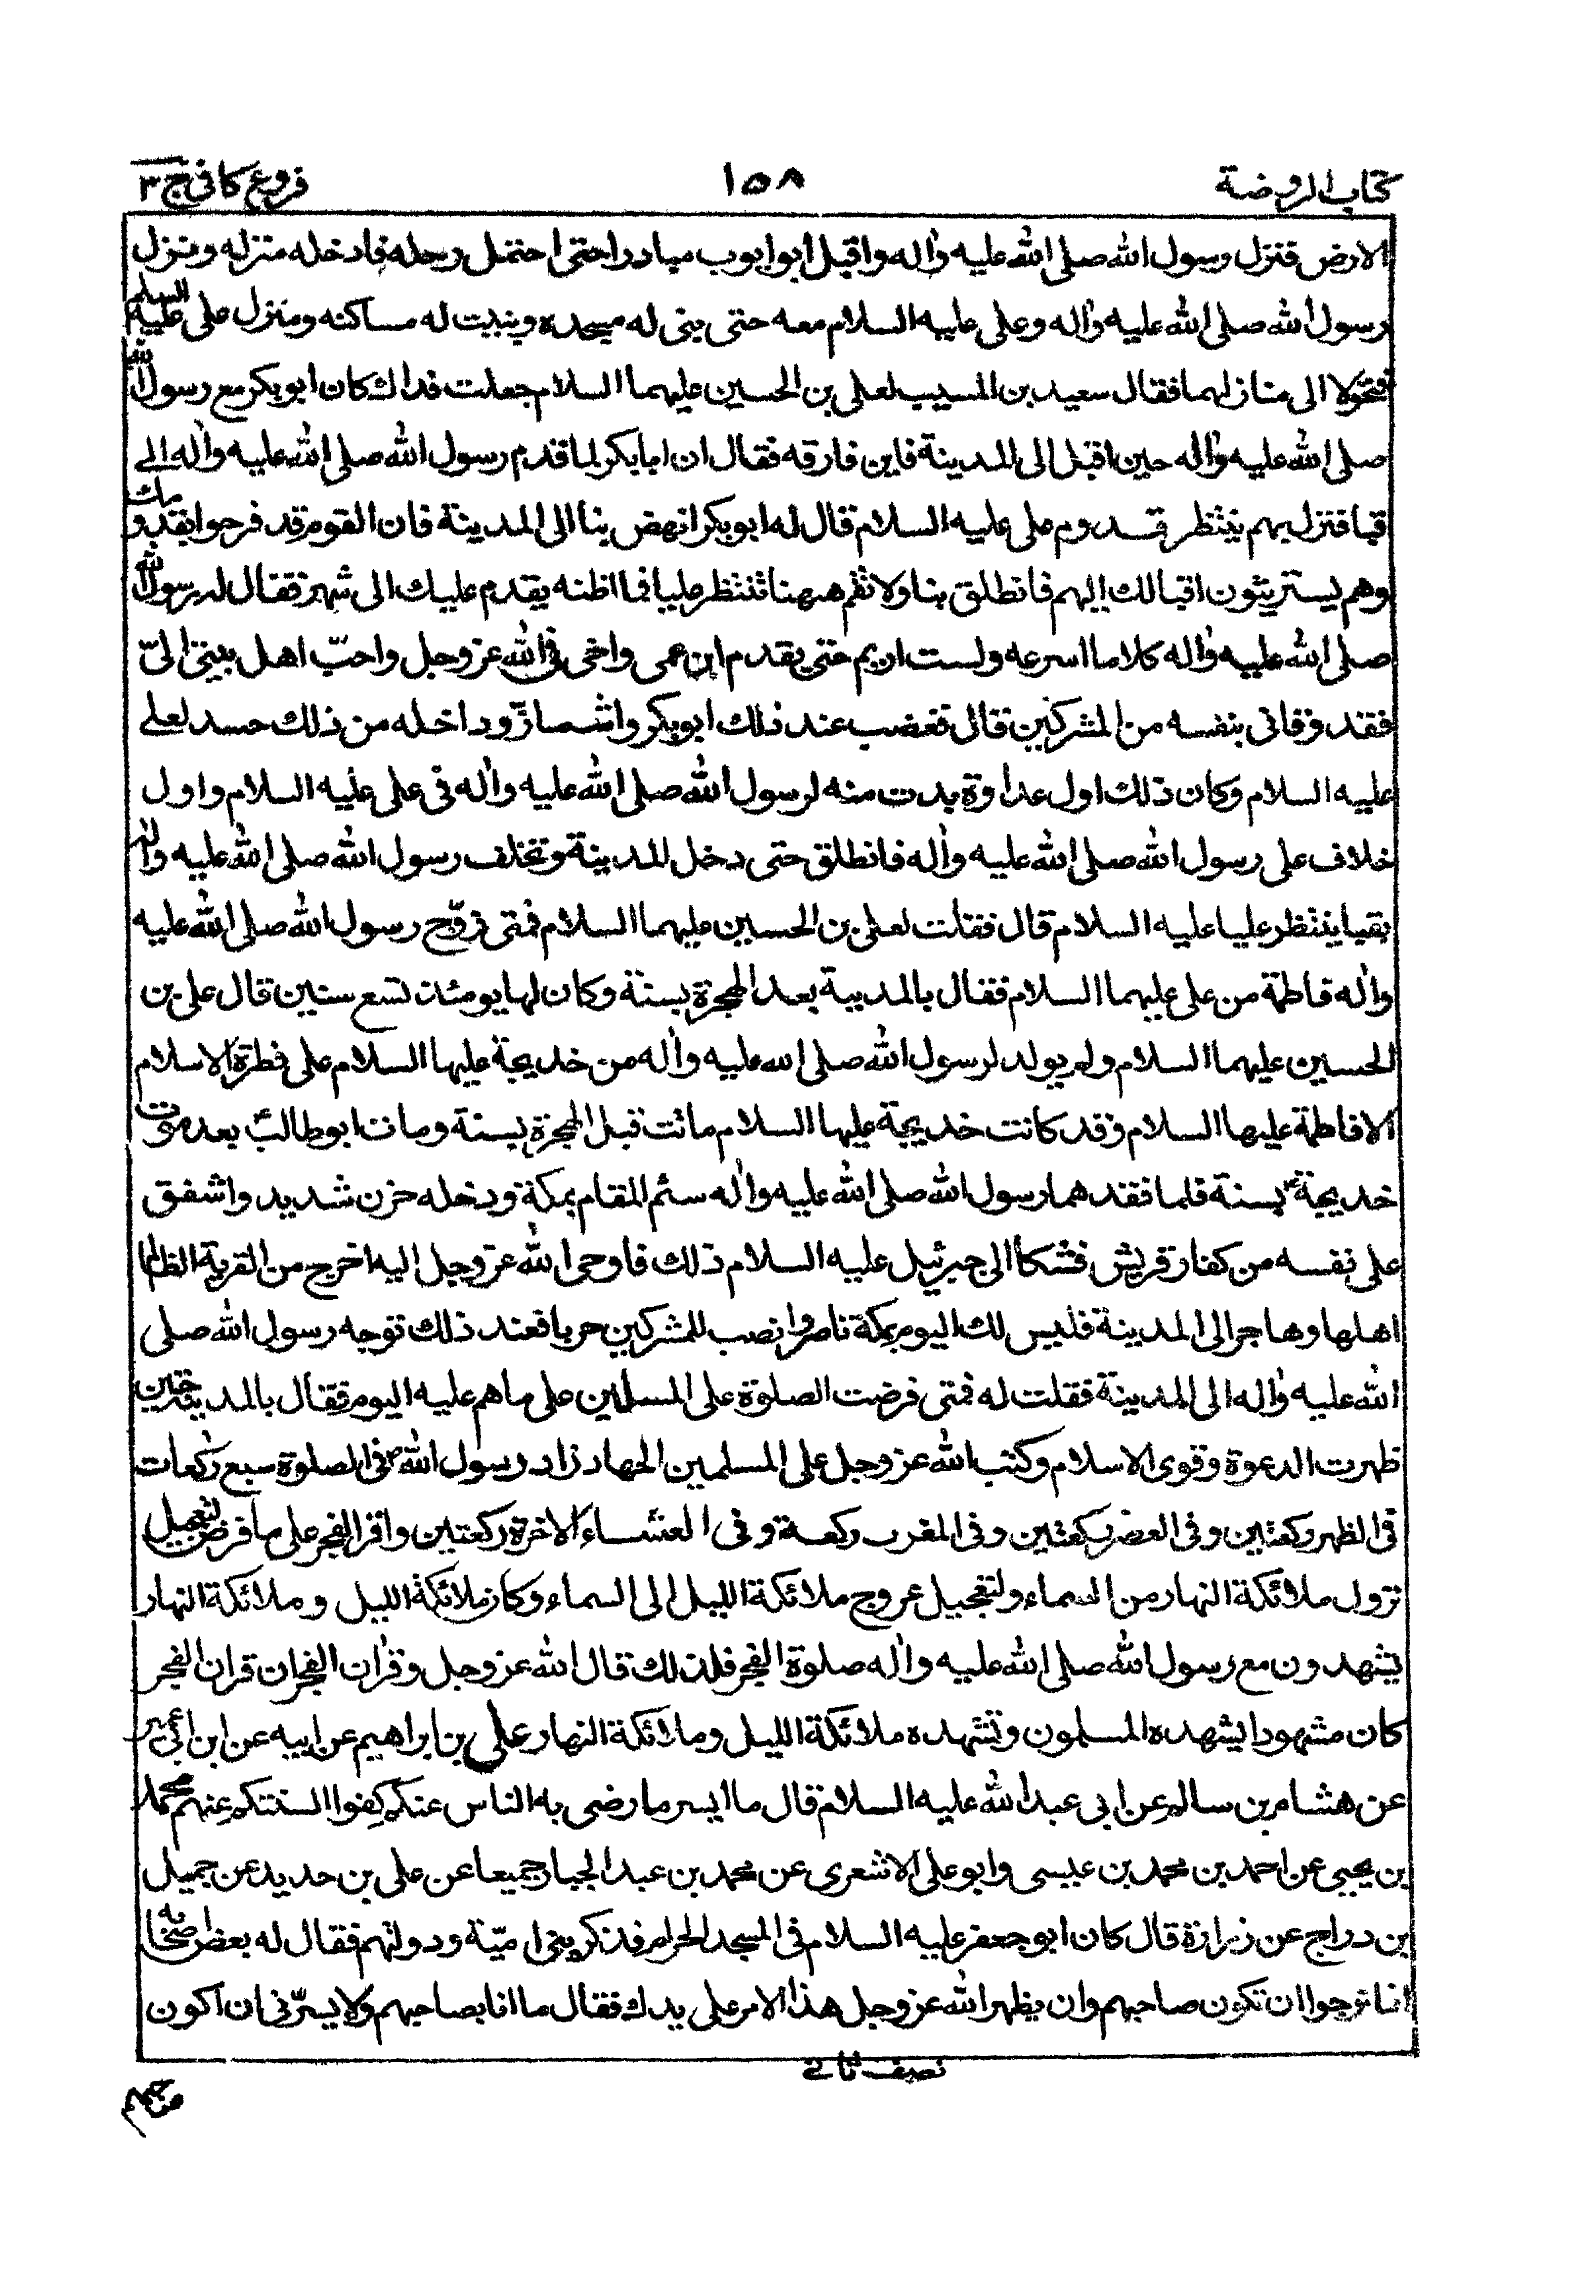 كتاب الروضة
١٥٨
فروع كافى ج ٣
الارض فنزل رسول الله صلى الله عليه واله واقبل ابو ايوب مبادرا حتى احتمل رحله فادخله منزله ونزل
رسول الله صلى الله عليه واله وعلى عليه السلام معه حتى بنى له مسجده وبنيت له مساكنه ومنزل على عليه السلم
فتحولا الى منازلهما فقال سعيد بن المسيب لعلى بن الحسين عليهما السلام جعلت فداك كان ابو بكر مع رسول الله
صلى الله عليه واله حين اقبل الى المدينة فاين فارقه فقال ان ابا بكر لما قدم رسول الله صلى الله عليه واله الى
قبا فنزل بهم ينتظر قدوم على عليه السلام قال له ابو بكر انهض بنا الى المدينة فان القوم قد فرحوا بقدومك
وهم يستريثون اقبالك اليهم فانطلق بنا ولا تقم ههنا تنتظر عليا فما اظنه يقدم عليك الى شهر فقال له رسول الله
صلى الله عليه واله كلا ما اسرعه ولست اريم حتى يقدم ابن عمى واخى فى الله عز وجل واحبّ اهل بيتى الىّ
فقد وقانى بنفسه من المشركين قال فغضب عند ذلك ابو بكر واشمازّ وداخله من ذلك حسد لعلى
عليه السلام وكان ذلك اول عداوة بدت منه لرسول الله صلى الله عليه واله فى على عليه السلام واول
خلاف على رسول الله صلى الله عليه واله فانطلق حتى دخل المدينة وتخلف رسول الله صلى الله عليه واله
بقبا ينتظر عليا عليه السلام قال فقلت لعلى بن الحسين عليهما السلام فمتى زوّج رسول الله صلى الله عليه
واله فاطمة من على عليهما السلام فقال بالمدينة بعد الهجرة بسنة وكان لها يومئذ تسع سنين قال على بن
الحسين عليهما السلام ولم يولد لرسول الله صلى الله عليه واله من خديجة عليها السلام على فطرة الاسلام
الا فاطمة عليها السلام وقد كانت خديجة عليها السلام ماتت قبل الهجرة بسنة ومات ابو طالب ع بعد موت
خديجة ع بسنة فلما فقدهما رسول الله صلى الله عليه واله سئم المقام بمكة ودخله حزن شديد واشفق
على نفسه من كفار قريش فشكا الى جبرئيل عليه السلام ذلك فاوحى الله عز وجل اليه اخرج من القرية الظالم
اهلها وهاجر الى المدينة فليس لك اليوم بمكة ناصر وانصب للمشركين حربا فعند ذلك توجه رسول الله صلى
الله عليه واله الى المدينة فقلت له فمتى فرضت الصلوة على المسلمين على ما هم عليه اليوم فقال بالمدينة حين
ظهرت الدعوة وقوى الاسلام وكتب الله عز وجل على المسلمين الجهاد زاد رسول الله ص فى الصلوة سبع ركعات
فى الظهر ركعتين وفى العصر ركعتين وفى المغرب ركعة وفى العشاء الاخرة ركعتين واقر الفجر على ما فرض لتعجيل
نزول ملائكة النهار من السماء ولتعجيل عروج ملائكة الليل الى السماء وكان ملائكة الليل و ملائكة النهار
يشهدون مع رسول الله صلى الله عليه واله صلوة الفجر فلذلك قال الله عز وجل وقران الفجر ان قران الفجر
كان مشهودا يشهده المسلمون وتشهده ملائكة الليل وملائكة النهار على بن ابراهيم عن ابيه عن ابن ابى عمير
عن هشام بن سالم عن ابى عبد الله عليه السلام قال ما ايسر ما رضى به الناس عنكم كفوا السنتكم عنهم محمد
بن يحيى عن احمد بن محمد بن عيسى وابو على الاشعرى عن محمد بن عبد الجبار جميعا عن على بن حديد عن جميل
بن دراج عن زرارة قال كان ابو جعفر عليه السلام فى المسجد الحرام فذكر بنى اميّة ودولتهم فقال له بعض اصحابه
انما نرجوا ان تكون صاحبهم وان يظهر الله عز وجل هذا الامر على يدك فقال ما انا بصاحبهم ولا يسرّنى ان اكون
نصف ثانى